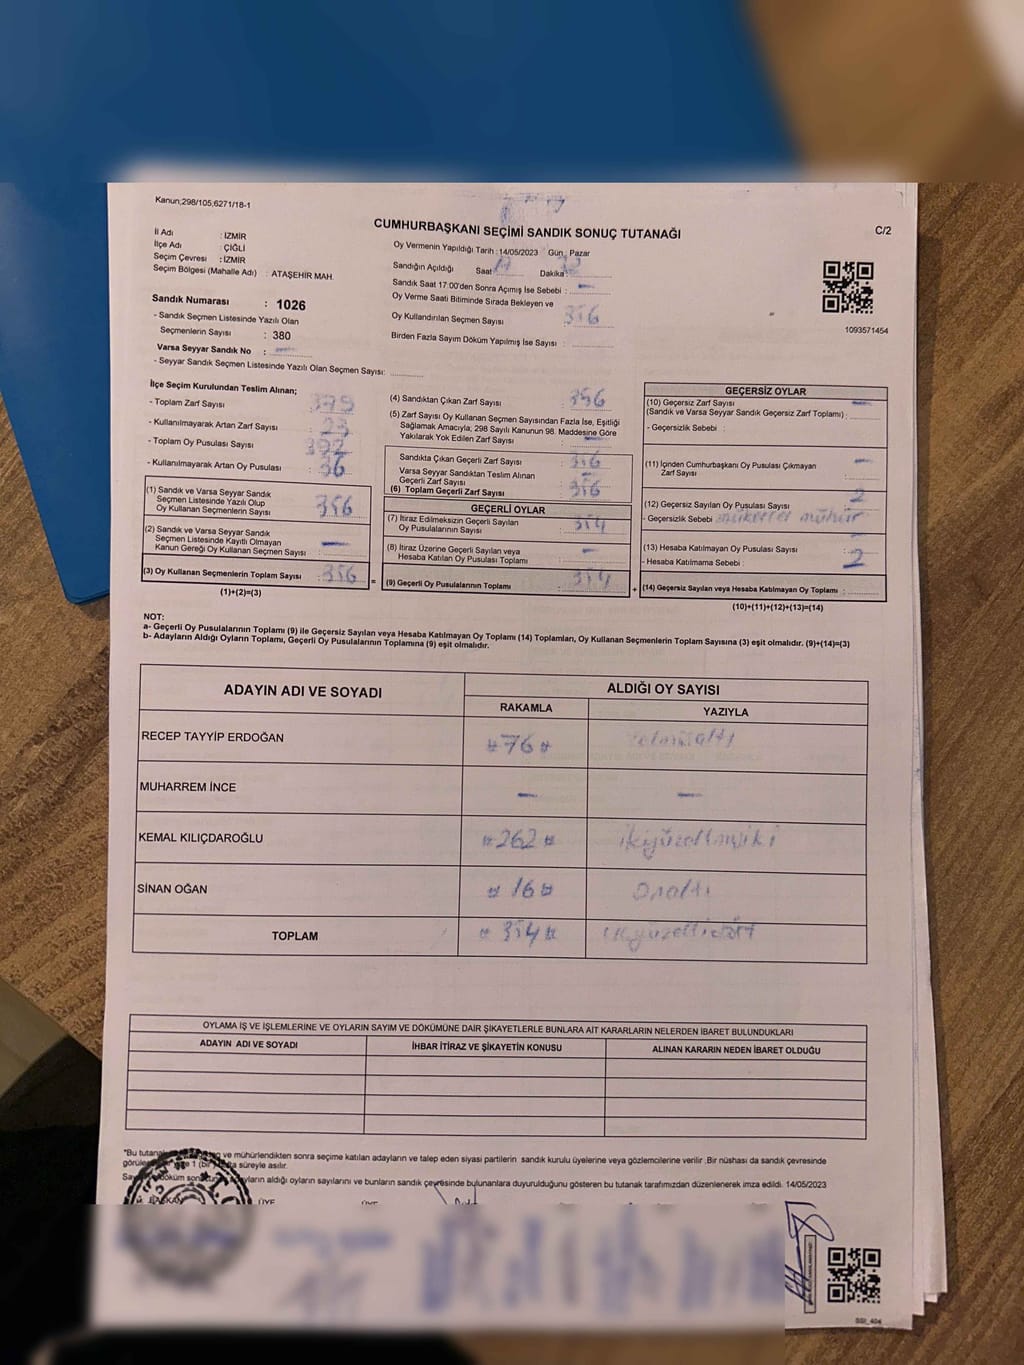 Kanun;298/105,6271/18-1
CUMHURBAŞKANI SEÇİMİ SANDIK SONUÇ TUTANAĞI
C/2
İl Adı : İZMİR
İlçe Adı : ÇİĞLİ
Seçim Çevresi : İZMİR
Seçim Bölgesi (Mahalle Adı) : ATAŞEHİR MAH.
Oy Vermenin Yapıldığı Tarih : 14/05/2023 Gün : Pazar
Sandığın Açıldığı Saat 17 Dakika : 32
Sandık Saat 17:00'den Sonra Açımış İse Sebebi : —
Oy Verme Saati Bitiminde Sırada Bekleyen ve
Oy Kullandırılan Seçmen Sayısı : 356
Birden Fazla Sayım Döküm Yapılmış İse Sayısı :
1093571454
Sandık Numarası : 1026
- Sandık Seçmen Listesinde Yazılı Olan
Seçmenlerin Sayısı : 380
Varsa Seyyar Sandık No : —
- Seyyar Sandık Seçmen Listesinde Yazılı Olan Seçmen Sayısı:
İlçe Seçim Kurulundan Teslim Alınan;
- Toplam Zarf Sayısı : 379
- Kullanılmayarak Artan Zarf Sayısı : 23
- Toplam Oy Pusulası Sayısı : 392
- Kullanılmayarak Artan Oy Pusulası : 36
(1) Sandık ve Varsa Seyyar Sandık
Seçmen Listesinde Yazılı Olup
Oy Kullanan Seçmenlerin Sayısı : 356
(2) Sandık ve Varsa Seyyar Sandık
Seçmen Listesinde Kayıtlı Olmayan
Kanun Gereği Oy Kullanan Seçmen Sayısı : —
(3) Oy Kullanan Seçmenlerin Toplam Sayısı : 356 =
(1)+(2)=(3)
(4) Sandıktan Çıkan Zarf Sayısı : 356
(5) Zarf Sayısı Oy Kullanan Seçmen Sayısından Fazla İse, Eşitliği
Sağlamak Amacıyla; 298 Sayılı Kanunun 98. Maddesine Göre
Yakılarak Yok Edilen Zarf Sayısı : —
Sandıkta Çıkan Geçerli Zarf Sayısı : 356
Varsa Seyyar Sandıktan Teslim Alınan
Geçerli Zarf Sayısı : —
(6) Toplam Geçerli Zarf Sayısı : 356
GEÇERLİ OYLAR
(7) İtiraz Edilmeksizin Geçerli Sayılan
Oy Pusulalarının Sayısı : 354
(8) İtiraz Üzerine Geçerli Sayılan veya
Hesaba Katılan Oy Pusulası Toplamı : —
(9) Geçerli Oy Pusulalarının Toplamı : 354 +
GEÇERSİZ OYLAR
(10) Geçersiz Zarf Sayısı : —
(Sandık ve Varsa Seyyar Sandık Geçersiz Zarf Toplamı) :
- Geçersizlik Sebebi :
(11) İçinden Cumhurbaşkanı Oy Pusulası Çıkmayan
Zarf Sayısı : —
(12) Geçersiz Sayılan Oy Pusulası Sayısı : 2
- Geçersizlik Sebebi mükerrer mühür
(13) Hesaba Katılmayan Oy Pusulası Sayısı : —
- Hesaba Katılmama Sebebi : 2
(14) Geçersiz Sayılan veya Hesaba Katılmayan Oy Toplamı :
(10)+(11)+(12)+(13)=(14)
NOT:
a- Geçerli Oy Pusulalarının Toplamı (9) ile Geçersiz Sayılan veya Hesaba Katılmayan Oy Toplamı (14) Toplamları, Oy Kullanan Seçmenlerin Toplam Sayısına (3) eşit olmalıdır. (9)+(14)=(3)
b- Adayların Aldığı Oyların Toplamı, Geçerli Oy Pusulalarının Toplamına (9) eşit olmalıdır.
ADAYIN ADI VE SOYADI
ALDIĞI OY SAYISI
RAKAMLA YAZIYLA
RECEP TAYYİP ERDOĞAN #76# yetmişaltı
MUHARREM İNCE — —
KEMAL KILIÇDAROĞLU #262# ikiyüzaltmışiki
SİNAN OĞAN #16# onaltı
TOPLAM #354# üçyüzellidört
OYLAMA İŞ VE İŞLEMLERİNE VE OYLARIN SAYIM VE DÖKÜMÜNE DAİR ŞİKAYETLERLE BUNLARA AİT KARARLARIN NELERDEN İBARET BULUNDUKLARI
ADAYIN ADI VE SOYADI İHBAR İTİRAZ VE ŞİKAYETİN KONUSU ALINAN KARARIN NEDEN İBARET OLDUĞU
"Bu tutanak ve mühürlendikten sonra seçime katılan adayların ve talep eden siyasi partilerin sandık kurulu üyelerine veya gözlemcilerine verilir .Bir nüshası da sandık çevresinde
1 (bir) süreyle asılır.
döküm adayların aldığı oyların sayılarını ve bunların sandık çevresinde bulunanlara duyurulduğunu gösteren bu tutanak tarafımızdan düzenlenerek imza edildi. 14/05/2023
BAŞKAN ÜYE ÜYE
SSI_404